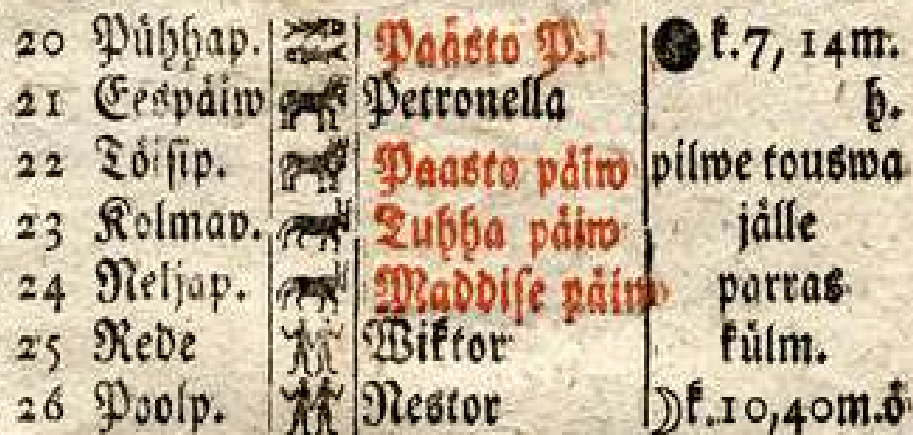 20 Pühhap. Paästo P. ⚫ k.7, 14m.
21 Eespäiw Petronella h.
22 Töisip. Paasto päiw pilwe touswa
23 Kolmap. Tuhha päiw jälle
24 Neljap. Maddise päiw parras
25 Rede Wiktor külm.
26 Poolp. Nestor ☽k.10,40m.ö